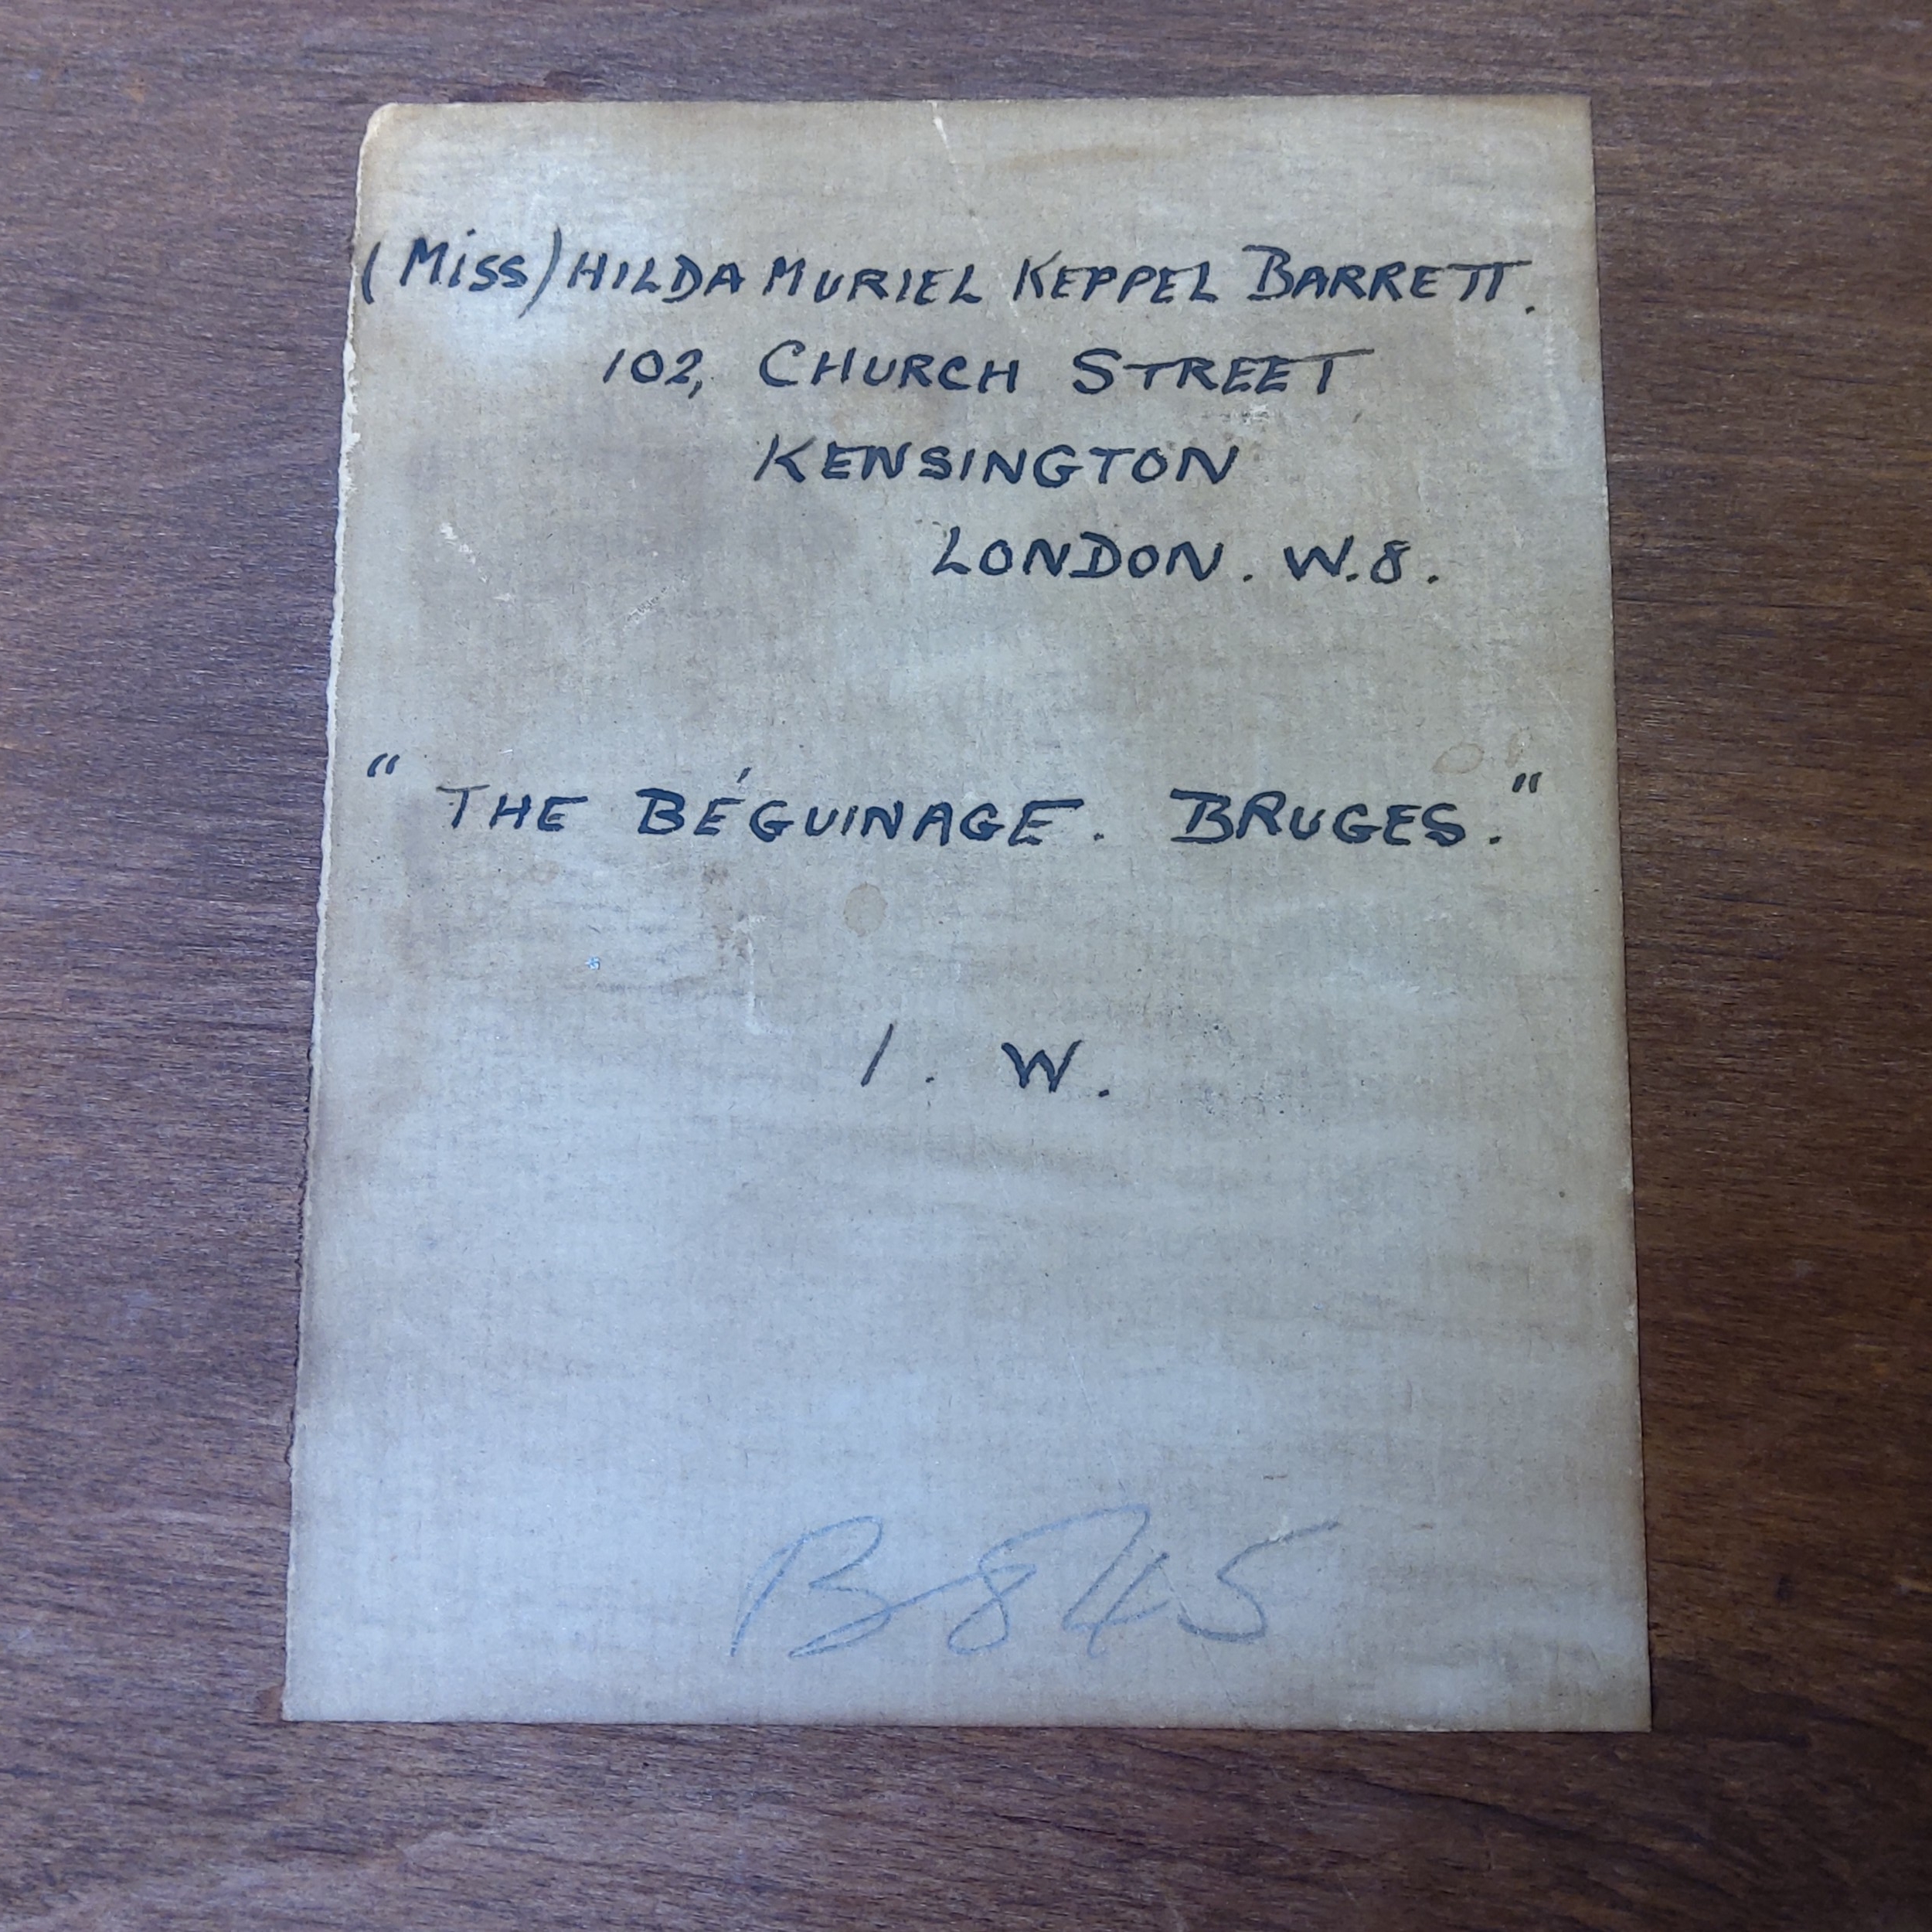 (Miss) HILDA MURIEL KEPPEL BARRETT.
102, CHURCH STREET
KENSINGTON
LONDON. W.8.
"THE BÉGUINAGE. BRUGES."
1. W.
B845